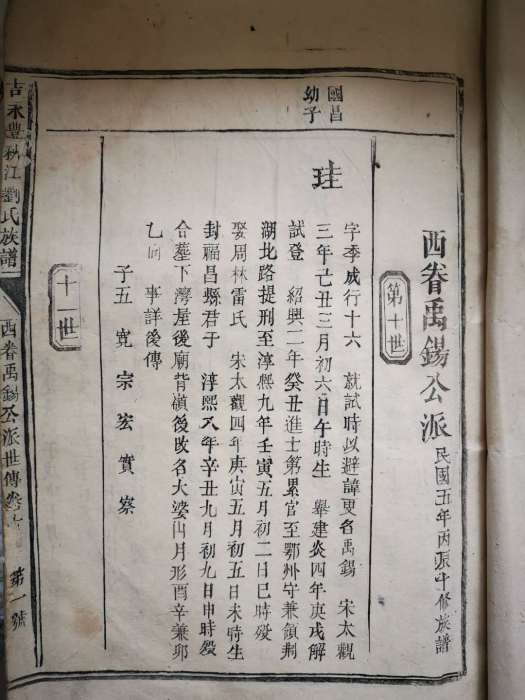 西眷禹錫公派 民國五年丙辰中修族譜
第十世
國昌
幼子
珪
字季成行十六 就試時以避諱更名禹錫 宋太觀
三年己丑三月初六日午時生 舉建炎四年庚戌解
試登 紹興二年癸丑進士第累官至鄂州守兼領荆
湖北路提刑至淳熙九年壬寅五月初二日巳時歿
娶周林雷氏 宋太觀四年庚寅五月初五日未時生
封福昌縣君子 淳熙八年辛丑九月初九日申時歿
合墓下灣屋後廟背嶺後改名大婆山月形酉辛兼卯
乙向 事詳後傳
子五 寬 宗 宏 實 察
十一世
吉永豐秋江劉氏族譜
西眷禹錫公派世傳卷
第一號